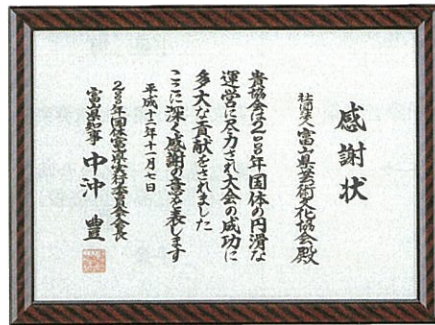 感謝状
社団法人富山県芸術文化協会殿
貴協会は2000年国体の円滑な
運営に尽力され大会の成功に
多大な貢献をされました
ここに深く感謝の意を表します
平成十二年十一月七日
2000年国体富山県実行委員会会長
富山県知事 中沖 豊